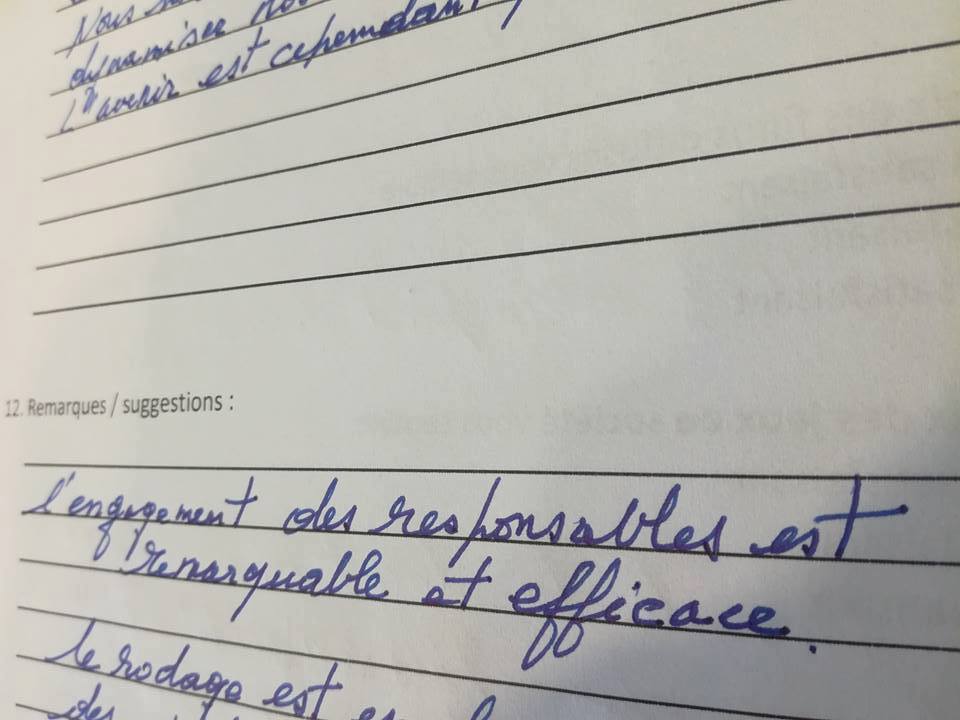 Nous
dynamiser
L'avenir est cependant
12. Remarques / suggestions :
l'engagement des responsables est
remarquable et efficace.
le rodage est
des